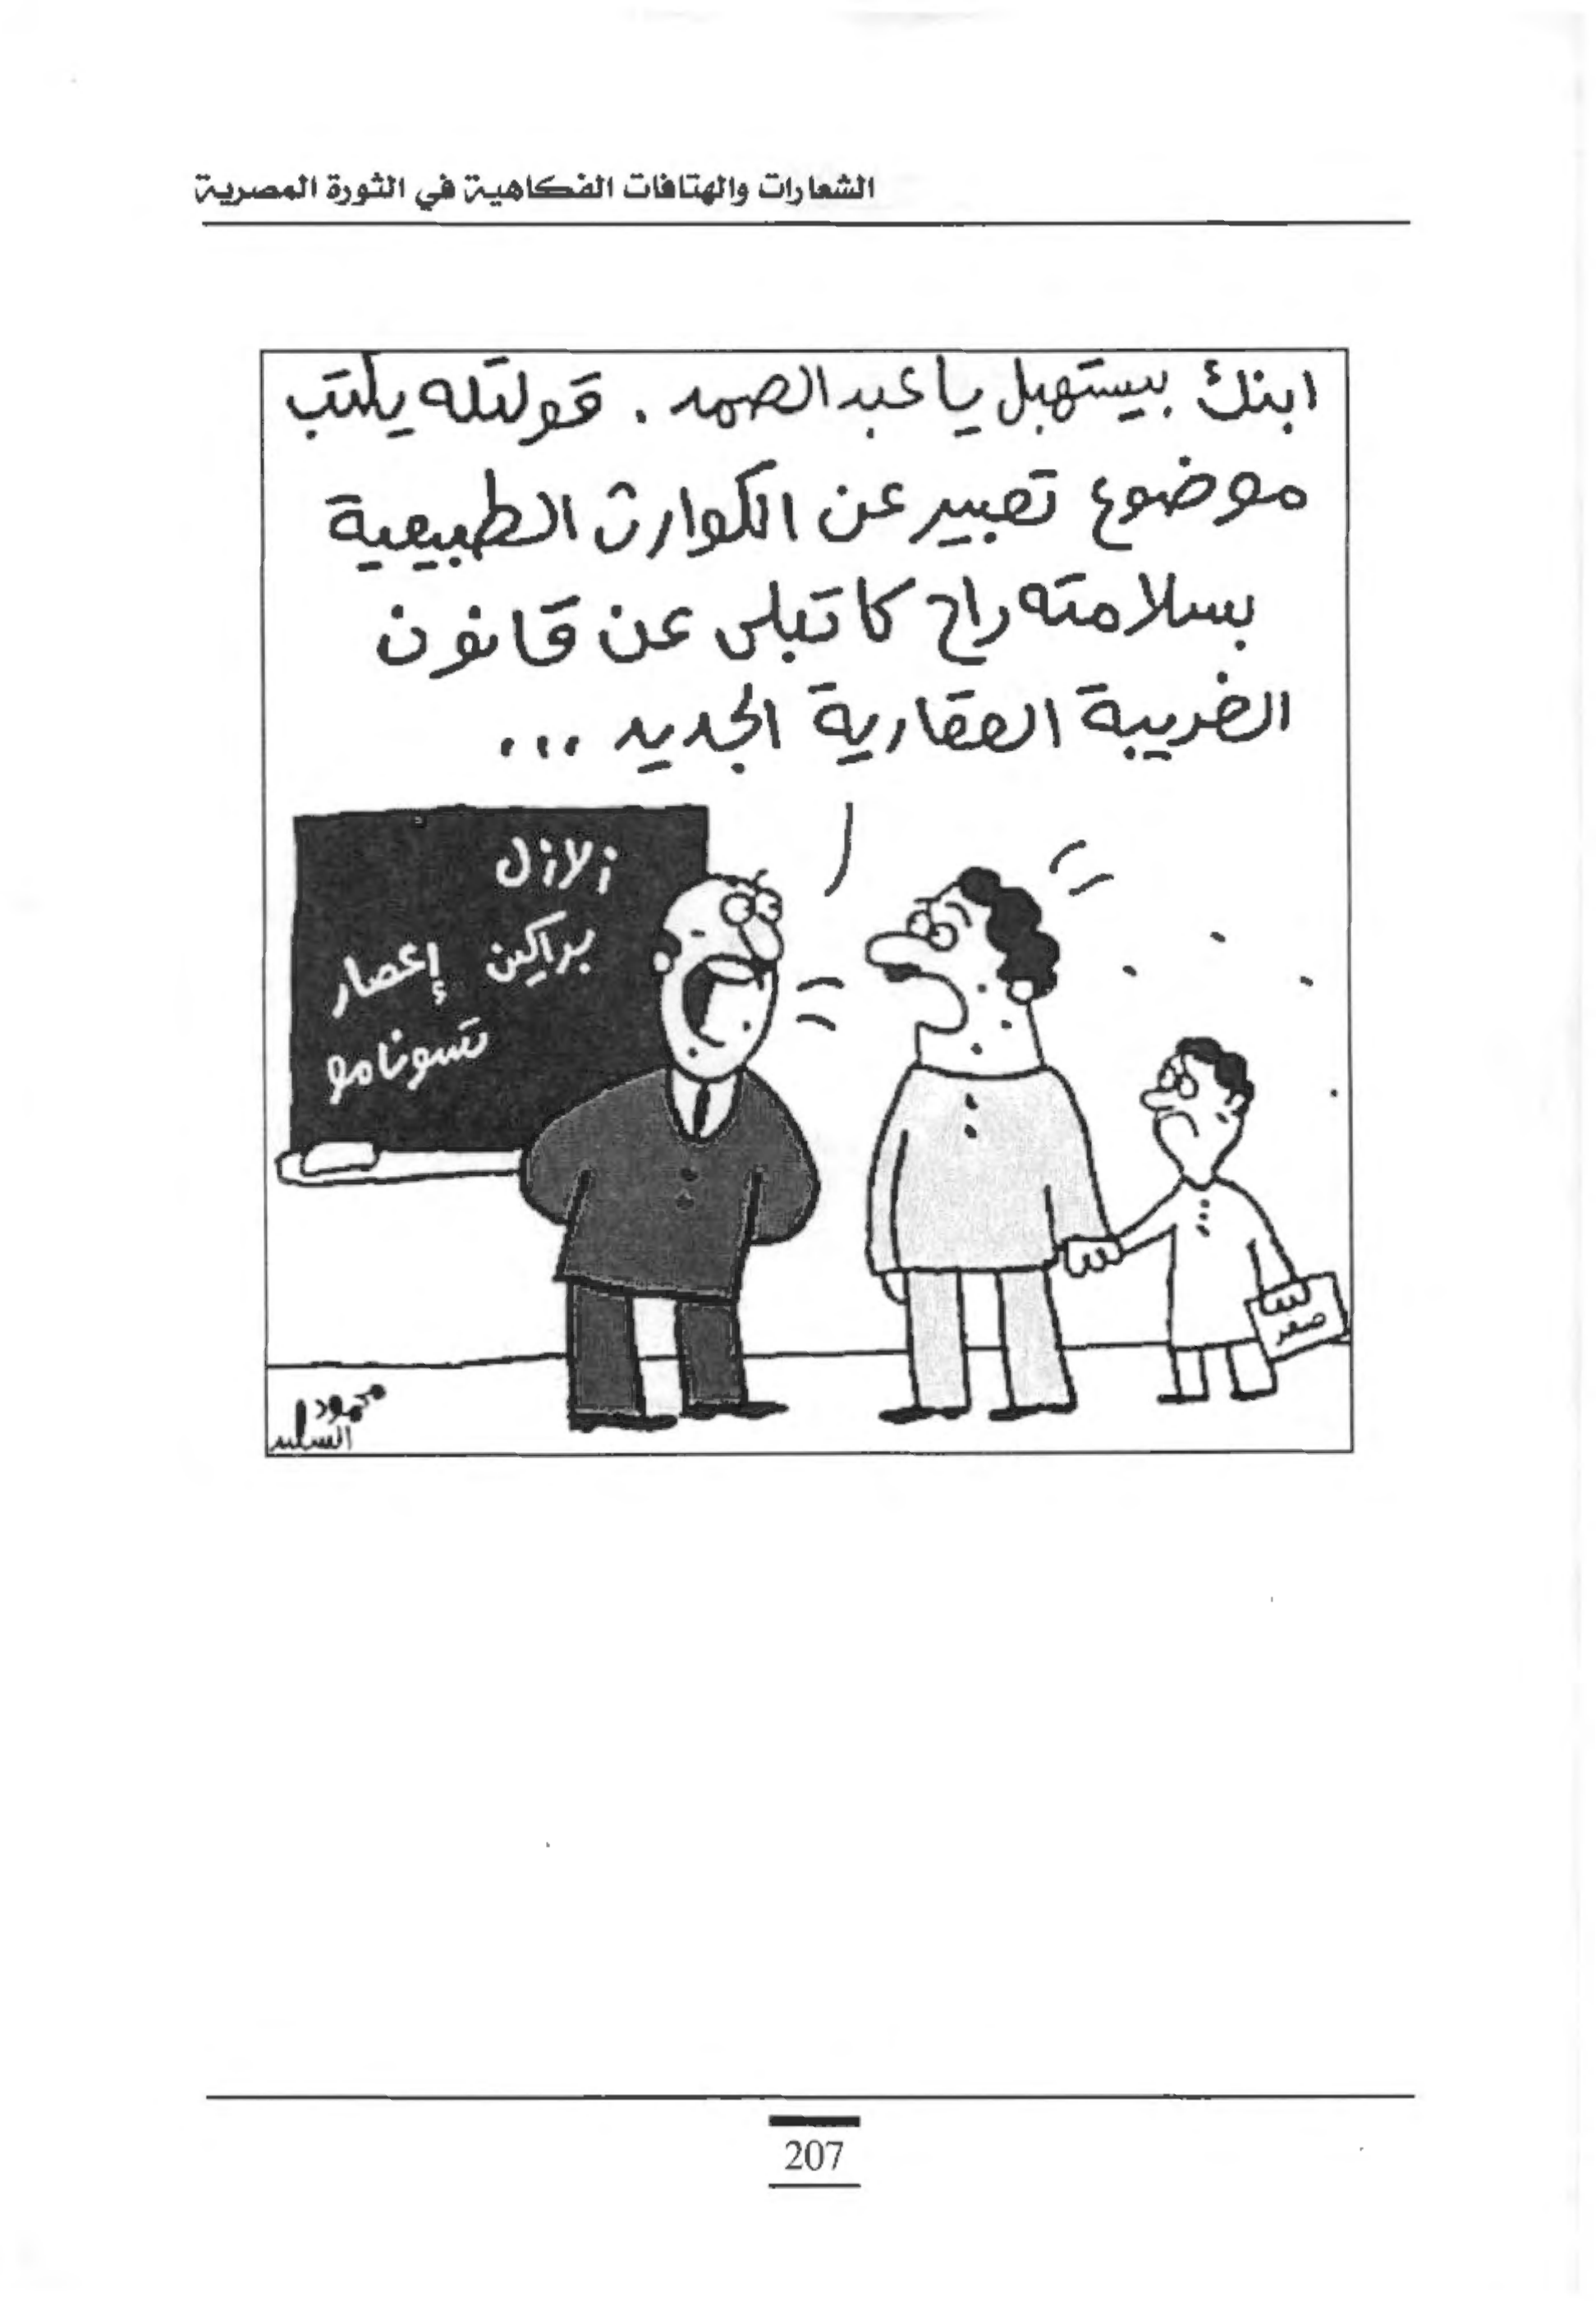 الشعارات والهتافات الفكاهية في الثورة المصرية
ابنك بيستهبل يا عبد الصمد . قولتله يكتب
موضوع تعبير عن الكوارث الطبيعية
بسلامته راح كاتبلى عن قانون
الضريبة العقارية الجديد ...
زلازل
براكين إعصار
تسونامو
صفر
محمود
207